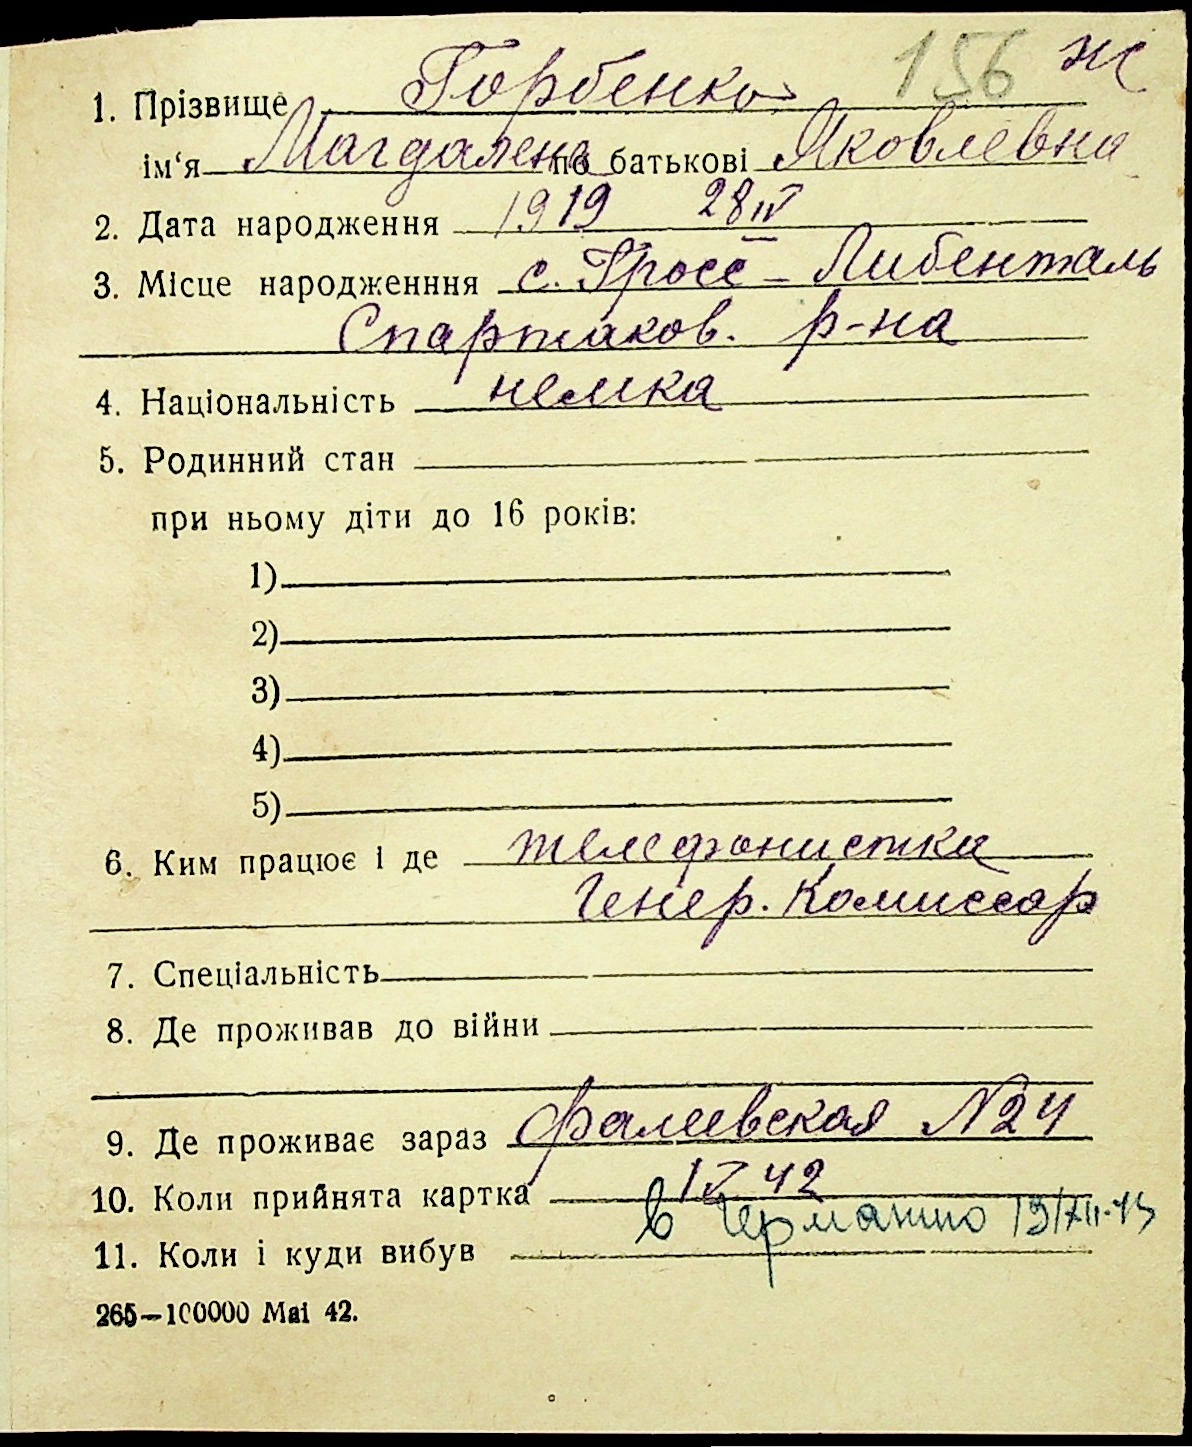 156 ж
1. Прізвище Горбенко
ім‘я Магдалена по батькові Яковлевна
2. Дата народження 1919 28 IV
3. Місце народженння с. Гросс-Либенталь
Спартаков. р-на
4. Національність немка
5. Родинний стан
при ньому діти до 16 років:
1)
2)
3)
4)
5)
6. Ким працює і де телефонистка
Генер. Комиссар
7. Спеціальність
8. Де проживав до війни
9. Де проживає зараз Фалеевская №24
10. Коли прийнята картка 42
в Германию 19/XII-43
11. Коли і куди вибув
265—100000 Mai 42.